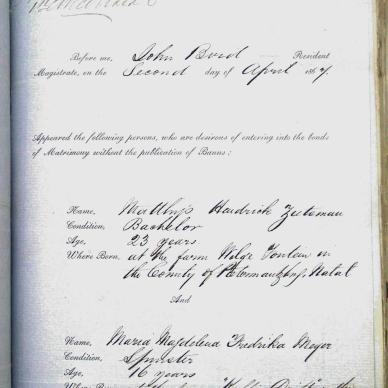 Before me, John Bird Resident
Magistrate, on the Second day of April 1867.
Appeared the following persons, who are desirous of entering into the bonds
of Matrimony without the publication of Banns:
Name, Matthys Hendrick Zietsman
Condition, Bachelor
Age, 23 years
Where Born, at the farm Wilge Fontein in
the County of Petermaritzburg, Natal
And
Name, Maria Magdelena Fredrika Meyer
Condition, Spinster
Age, 16 years
Where Born,